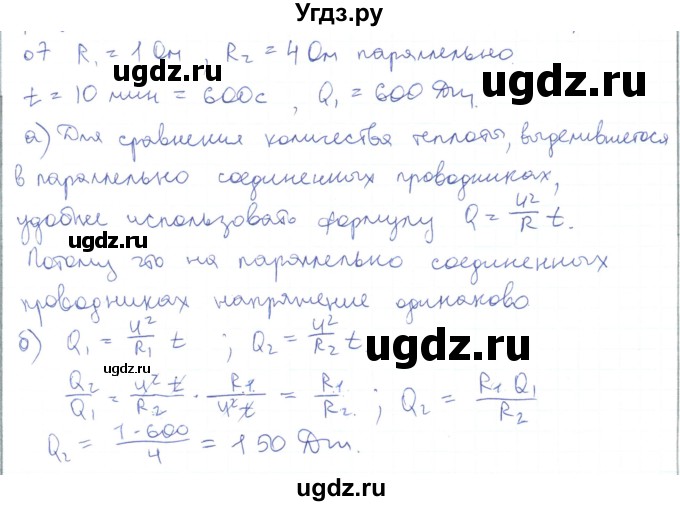 Угдз.ру
07 R₁ = 1 Ом, R₂ = 4 Ом параллельно
ugdz.ru ugdz.ru
t = 10 мин = 600с, Q₁ = 600 Дж.
а) Для сравнения количества теплоты, выделившегося
в параллельно соединенных проводниках,
удобнее использовать формулу Q = U²/R t.
ugdz.ru
Потому что на параллельно соединенных
проводниках напряжение одинаково
б) Q₁ = U²/R₁ t ; Q₂ = U²/R₂ t
ugdz.ru
ugdz.ru
Q₂/Q₁ = U² t/R₂ · R₁/U² t = R₁/R₂ ; Q₂ = R₁ Q₁/R₂
Q₂ = 1·600/4 = 150 Дж.
ugdz.ru ugdz.ru
ugdz.ru